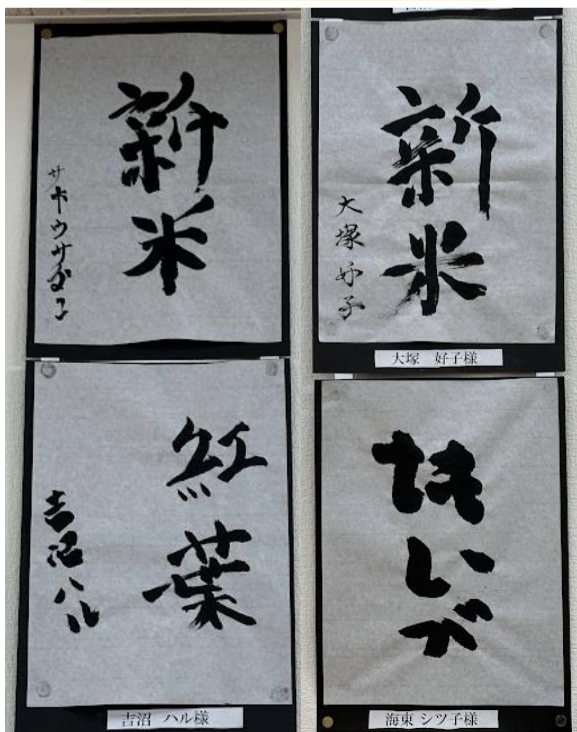 新米
サトウサダコ
新米
大塚好子
大塚 好子様
紅葉
吉沼ハル
吉沼 ハル様
海東 シツ子様